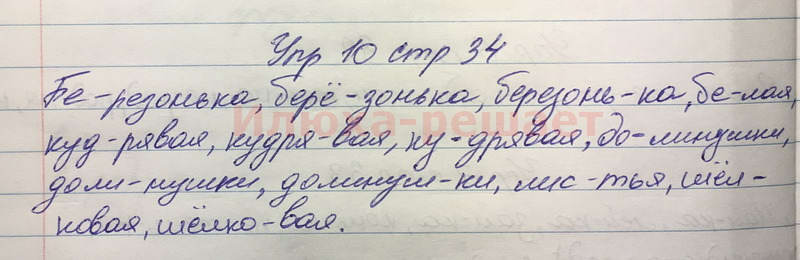 Упр 10 стр 34
Бе-резонька, берё-зонька, березонь-ка, бе-лая,
куд-рявая, кудря-вая, ку-дрявая, до-линушки,
доли-нушки, долинуш-ки, лис-тья, шёл-
ковая, шёлко-вая.
Илюха-решает